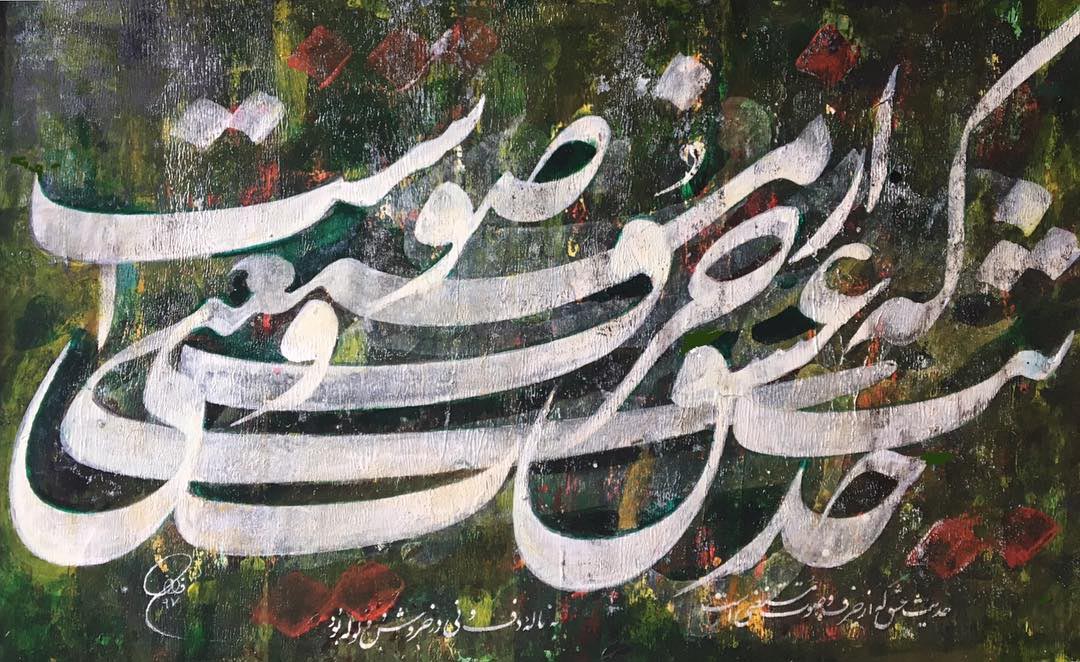 حدیث عشق که از حرف و صوت مستغنیست
حدیث عشق که از حرف و صوت مستغنی است
به ناله دف و نی در خروش و ولوله بود
۹۷